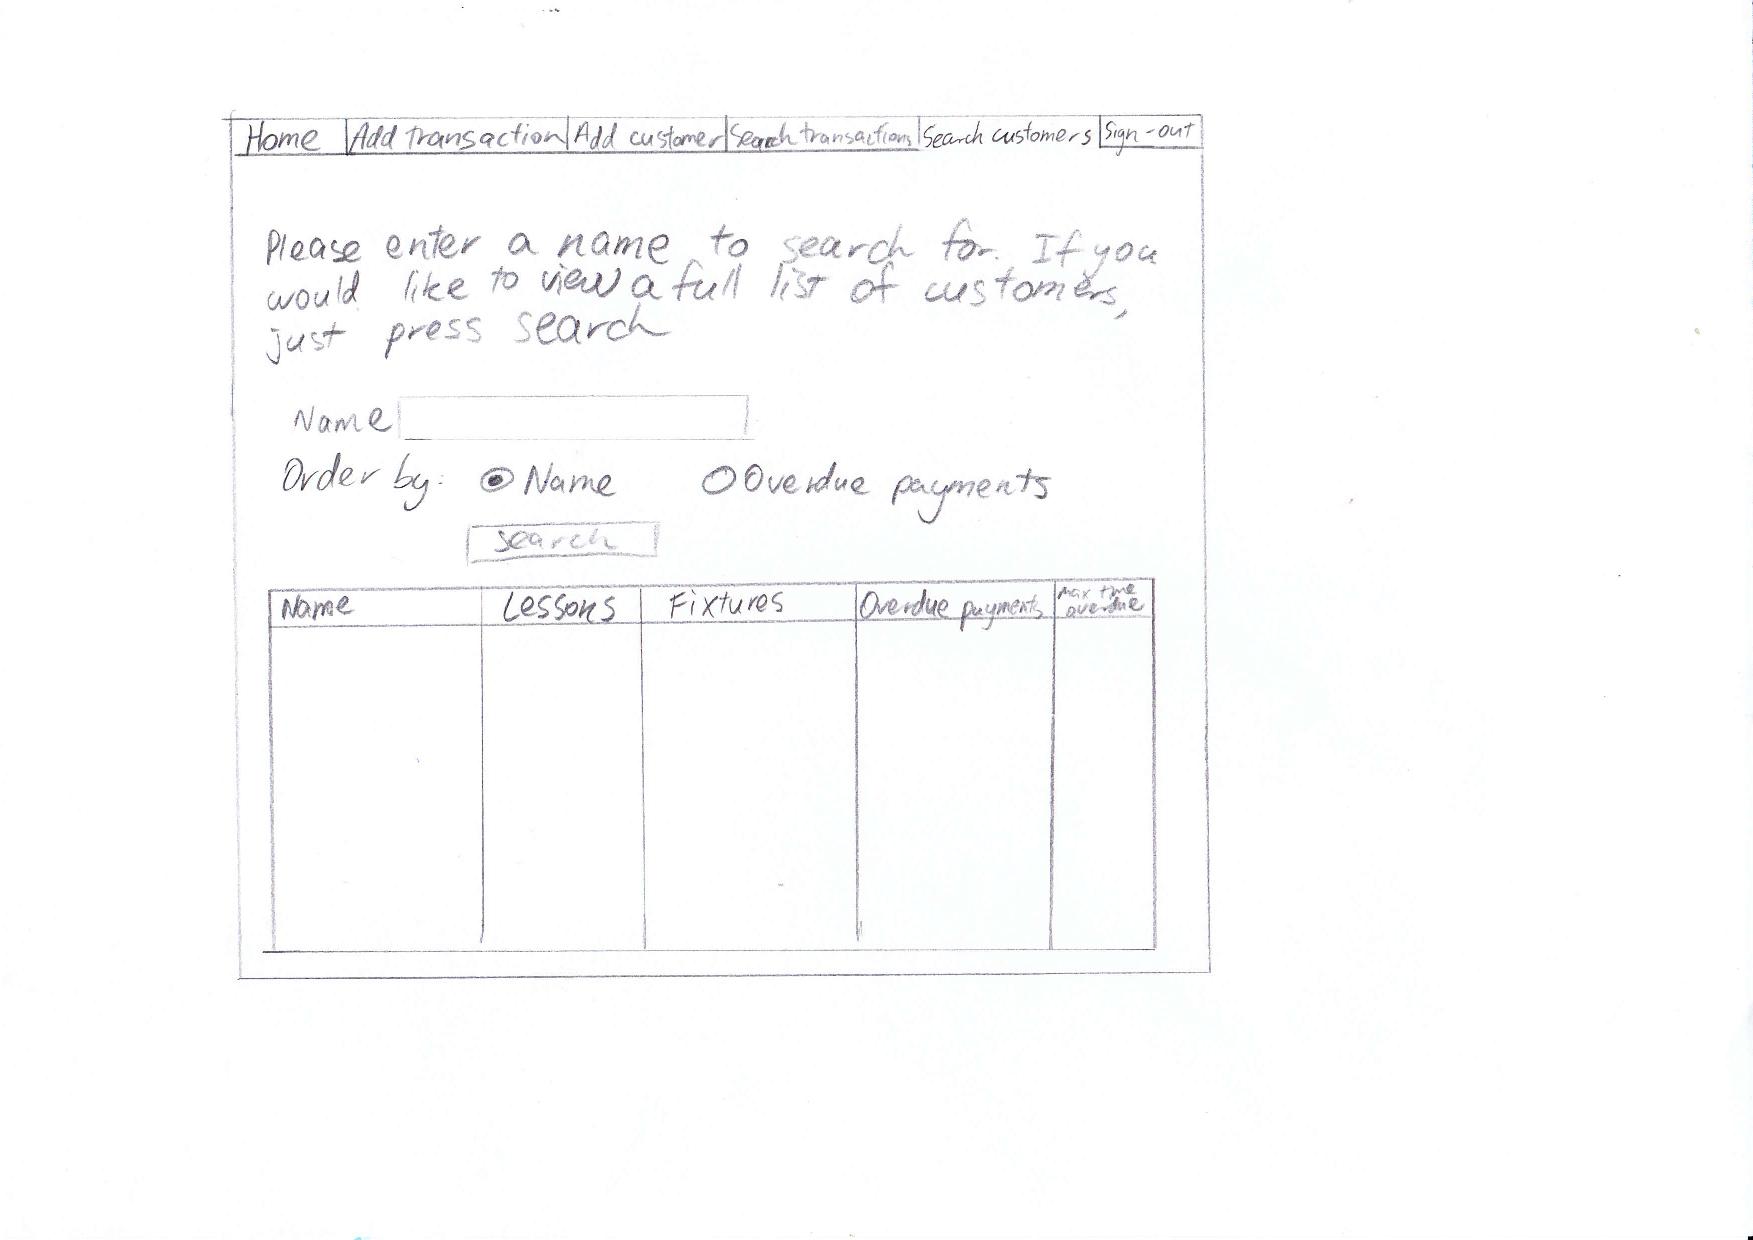 Home Add transaction Add customer Search transactions Search customers Sign-out
Please enter a name to search for. If you
would like to view a full list of customers,
just press search
Name
Order by: Name Overdue payments
search
Name Lessons Fixtures Overdue payments max time overdue